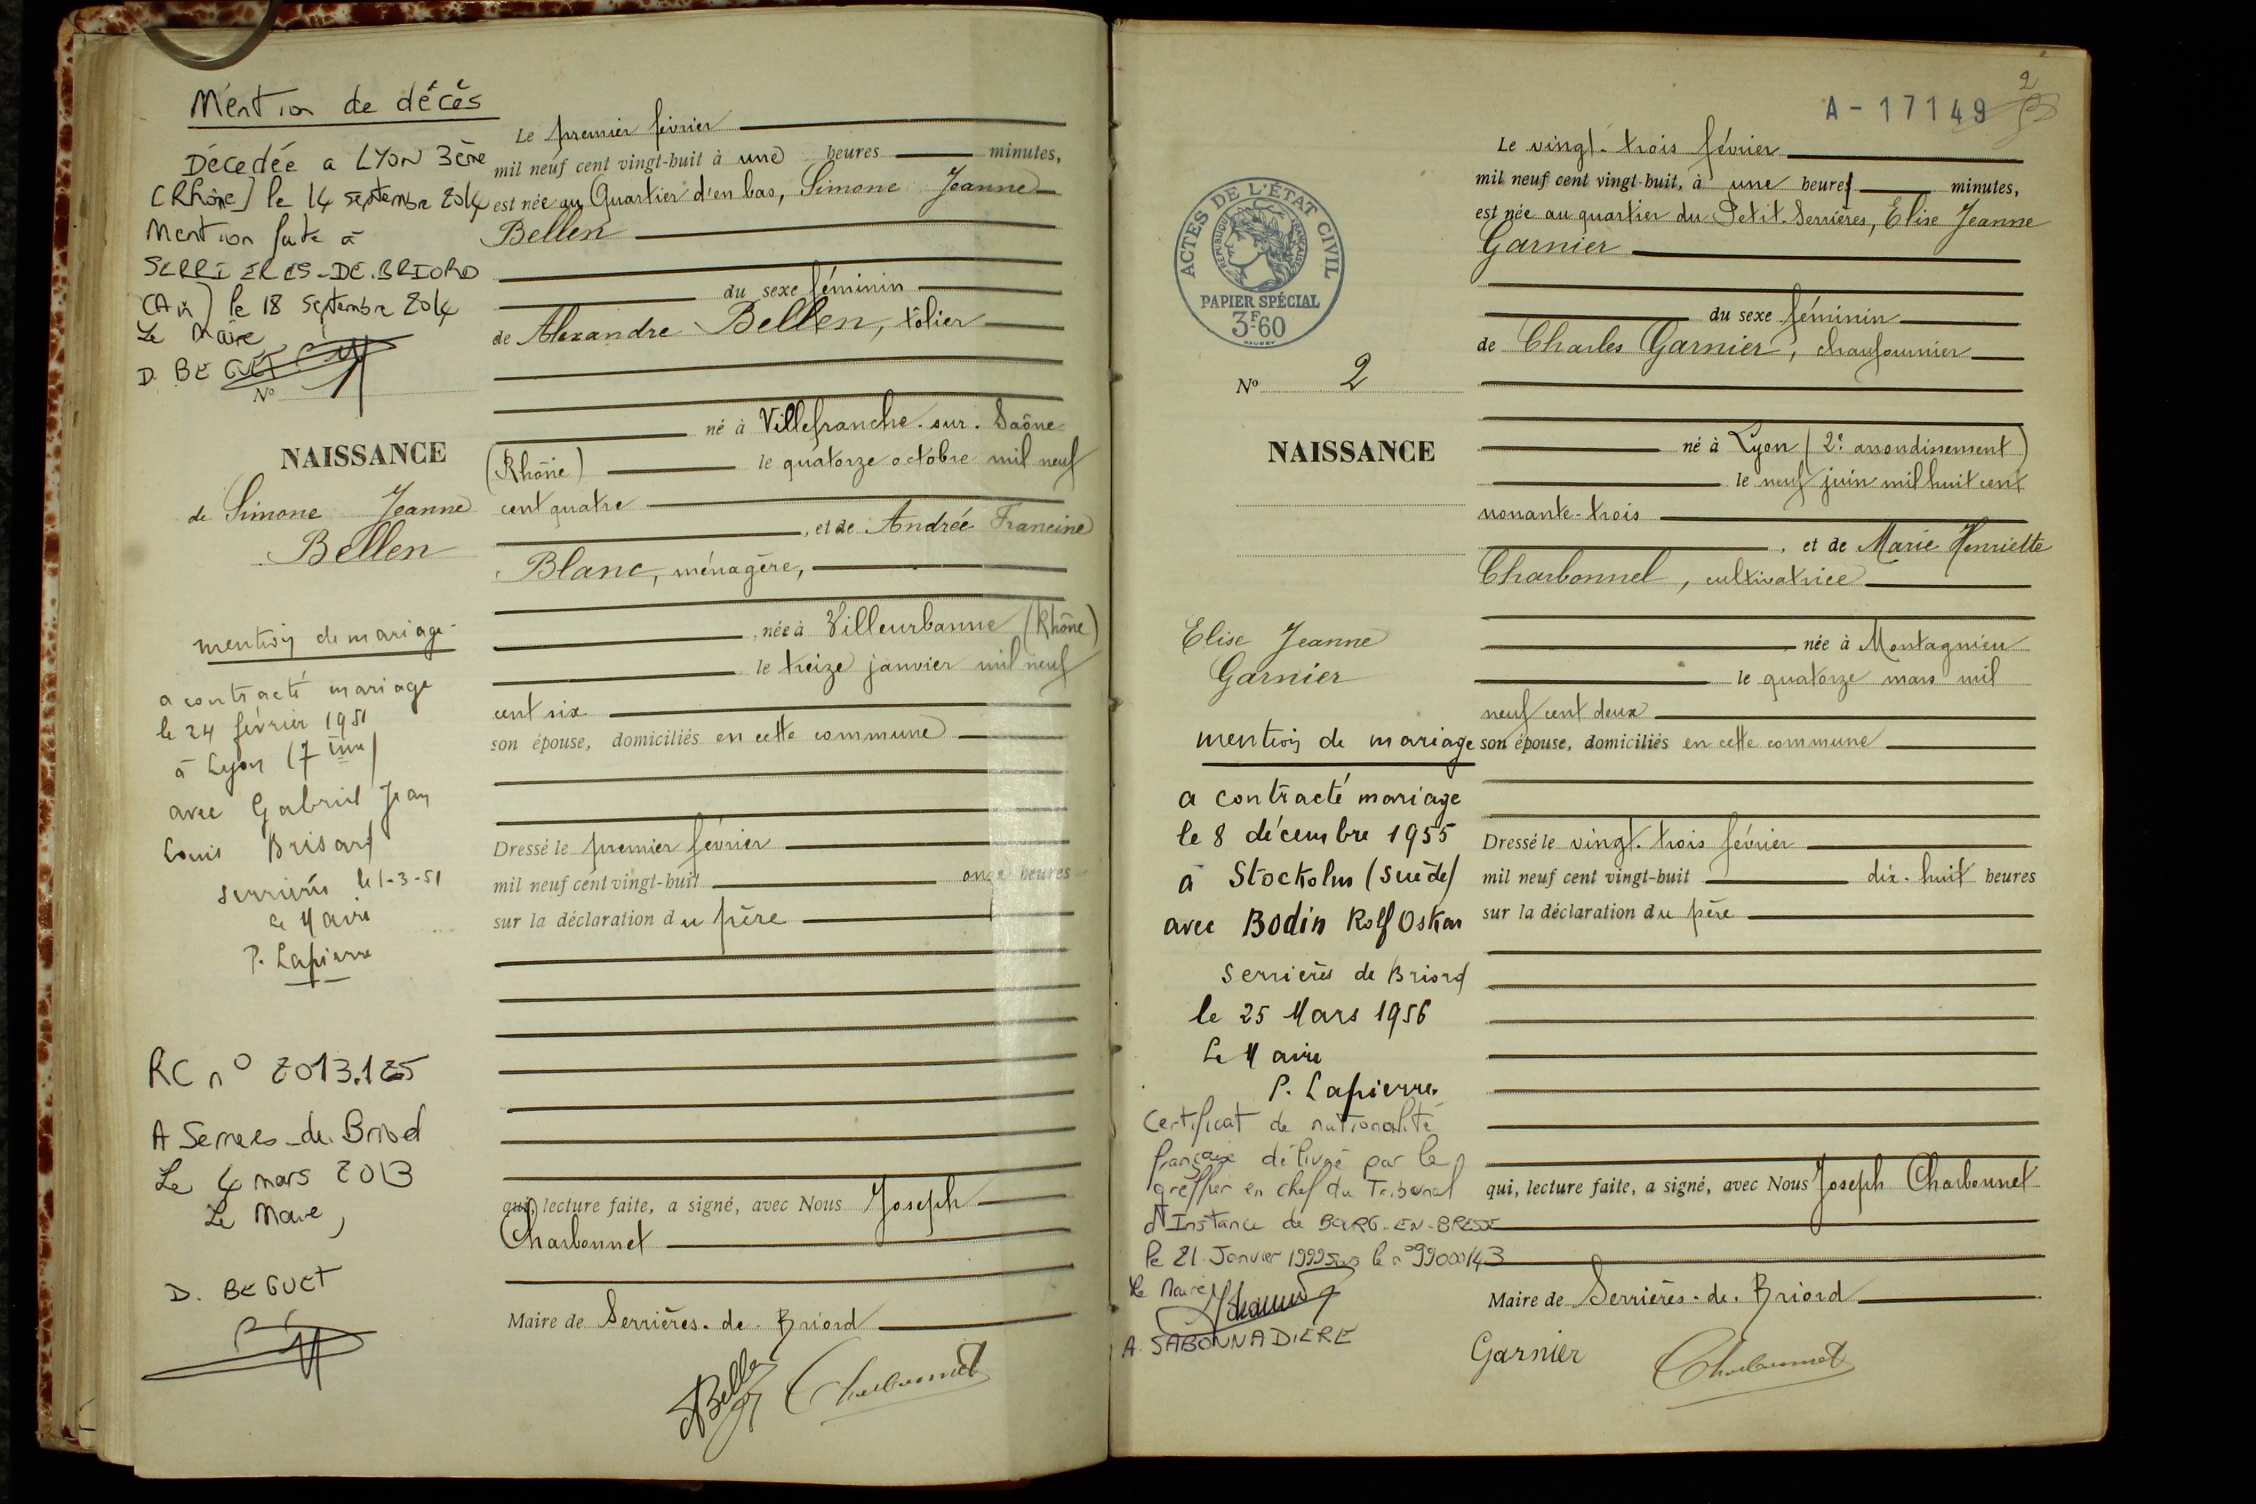 Mention de décès
Décedée a LYON 3ème
(Rhône) le 14 septembre 2014
Mention faite à
SERRIERES-DE.BRIORD
(Ain) le 18 septembre 2014
Le Maire
D. BEGUET
No
NAISSANCE
de Simone Jeanne
Bellen
mention de mariage
a contracté mariage
le 24 février 1951
à Lyon (7ème)
avec Gabriel Jean
Louis Brisard
Serrières le 1-3-51
Le Maire
P. Lapierre
RC n° 2013.125
A Serrieres-de-Briord
Le 4 mars 2013
Le Maire,
D. BEGUET
Le premier février
mil neuf cent vingt-huit à une heures minutes,
est née au Quartier d'en bas, Simone Jeanne
Bellen
du sexe féminin
de Alexandre Bellen, tôlier
né à Villefranche-sur-Saône
(Rhône) le quatorze octobre mil neuf
cent quatre
, et de Andrée Francine
Blanc, ménagère,
, née à Villeurbanne (Rhône)
le treize janvier mil neuf
cent six
son épouse, domiciliés en cette commune
Dressé le premier février
mil neuf cent vingt-huit onze heures
sur la déclaration du père
qui, lecture faite, a signé, avec Nous Joseph
Charbonnet
Maire de Serrières-de-Briord
Bellen Charbonnet
2
A-17149
ACTES DE L'ÉTAT CIVIL
RÉPUBLIQUE FRANÇAISE
PAPIER SPÉCIAL
3F.60
No 2
NAISSANCE
Elise Jeanne
Garnier
mention de mariage
a contracté mariage
le 8 décembre 1955
à Stockolm (Suède)
avec Bodin Rolf Oskar
Serrières de Briord
le 25 Mars 1956
Le Maire
P. Lapierre.
Certificat de nationalité
française délivré par le
greffier en chef du Tribunal
d'Instance de BOURG-EN-BRESSE
le 21 Janvier 1999 sous le n°
Le Maire
A. SABONNADIERE
Le vingt-trois février
mil neuf cent vingt-huit, à une heures minutes,
est née au quartier du Petit-Serrières, Elise Jeanne
Garnier
du sexe féminin
de Charles Garnier, chaufournier
né à Lyon (2e arrondissement)
le neuf juin mil huit cent
nonante-trois
, et de Marie Henriette
Charbonnel, cultivatrice
née à Montagnieu
le quatorze mars mil
neuf cent deux
son épouse, domiciliés en cette commune
Dressé le vingt-trois février
mil neuf cent vingt-huit dix-huit heures
sur la déclaration du père
qui, lecture faite, a signé, avec Nous Joseph Charbonnet
Maire de Serrières-de-Briord
Garnier Charbonnet